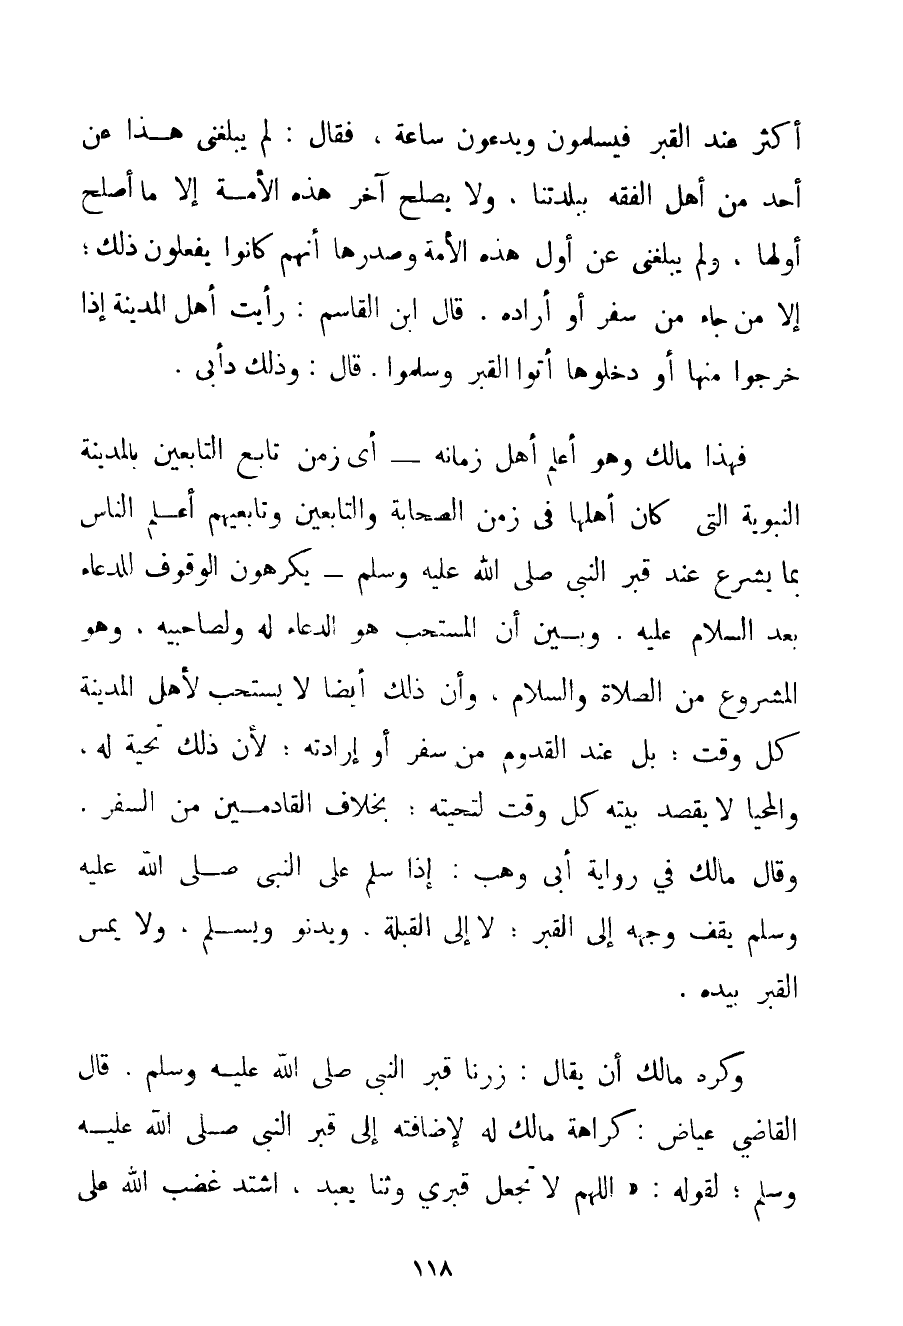 أكثر عند القبر فيسلمون ويدعون ساعة ، فقال : لم يبلغنى هـذا عن
أحد من أهل الفقه ببلدتنا ، ولا يصلح آخر هذه الأمـة إلا ما أصلح
أولها ، ولم يبلغنى عن أول هذه الأمة وصدرها أنهم كانوا يفعلون ذلك ؛
إلا من جاء من سفر أو أراده . قال ابن القاسم : رأيت أهل المدينة إذا
خرجوا منها أو دخلوها أتوا القبر وسلموا . قال : وذلك دأبى .
فهذا مالك وهو أعلم أهل زمانه — أى زمن تابع التابعين بالمدينة
النبوية التى كان أهلها فى زمن الصحابة والتابعين وتابعيهم أعـلم الناس
بما يشرع عند قبر النبى صلى الله عليه وسلم — يكرهون الوقوف للدعاء
بعد السلام عليه . وبـين أن المستحب هو الدعاء له ولصاحبيه ، وهو
المشروع من الصلاة والسلام ، وأن ذلك أيضا لا يستحب لأهل المدينة
كل وقت ؛ بل عند القدوم من سفر أو إرادته ؛ لأن ذلك تحية له ،
والمحيا لا يقصد بيته كل وقت لتحيته ؛ بخلاف القادمـين من السفر .
وقال مالك في رواية أبى وهب : إذا سلم على النبى صـلى الله عليه
وسلم يقف وجهه إلى القبر ؛ لا إلى القبلة . ويدنو ويسـلم ، ولا يمس
القبر بيده .
وكره مالك أن يقال : زرنا قبر النبى صلى الله عليـه وسلم . قال
القاضي عياض : كراهة مالك له لإضافته إلى قبر النبى صـلى الله عليـه
وسلم ؛ لقوله : « اللهم لا تجعل قبري وثنا يعبد ، اشتد غضب الله على
١١٨